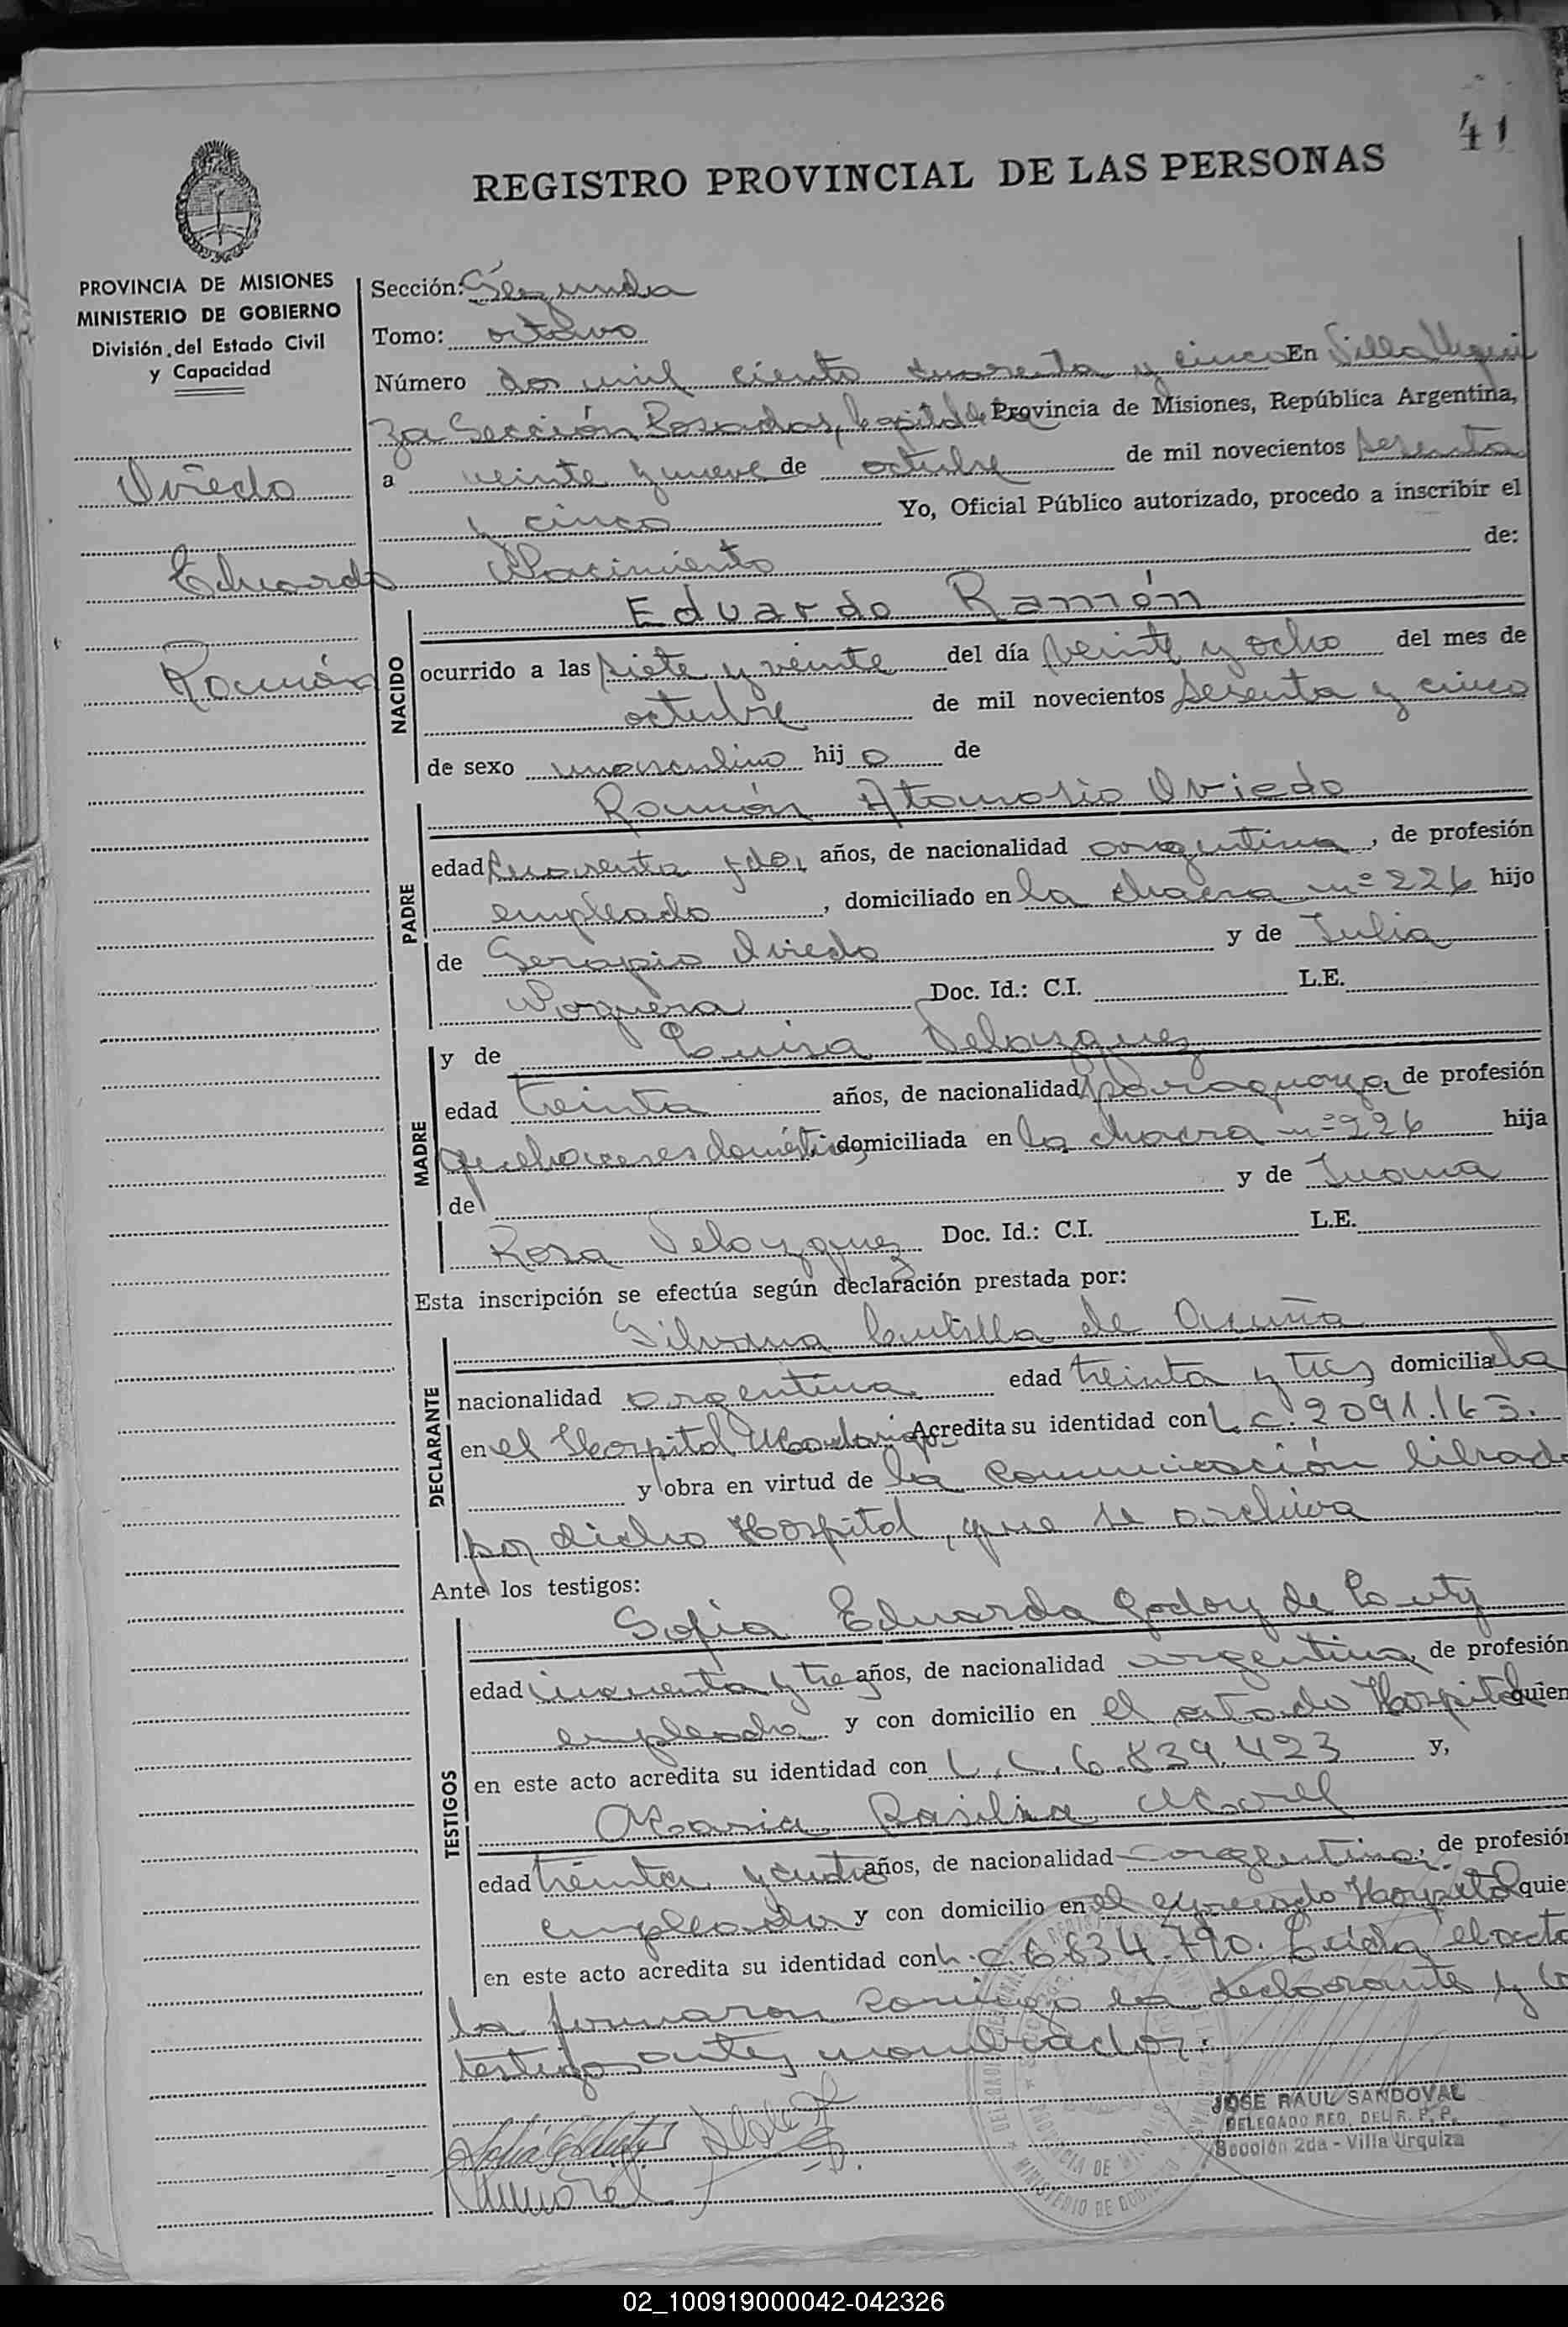 41
REGISTRO PROVINCIAL DE LAS PERSONAS
PROVINCIA DE MISIONES
MINISTERIO DE GOBIERNO
División del Estado Civil
y Capacidad
Oviedo
Eduardo
Ramón
Sección: Segunda
Tomo: octavo
Número dos mil ciento cuarenta y cinco En Villa Urqui
za Sección Posadas, Capital de la Provincia de Misiones, República Argentina,
a veinte y nueve de octubre de mil novecientos sesenta
y cinco Yo, Oficial Público autorizado, procedo a inscribir el
Nacimiento de:
NACIDO
Eduardo Ramón
ocurrido a las siete y veinte del día veinte y ocho del mes de
octubre de mil novecientos sesenta y cinco
de sexo masculino hij o de
PADRE
Ramón Atanasio Oviedo
edad cuarenta y dos años, de nacionalidad argentina, de profesión
empleado, domiciliado en la chacra nº 226 hijo
de Serapio Oviedo y de Julia
Noguera Doc. Id.: C.I. L.E.
MADRE
y de Luisa Velazquez
edad treinta años, de nacionalidad paraguaya, de profesión
quehaceres domésticos, domiciliada en la chacra nº 226 hija
de y de Juana
Rosa Velazquez Doc. Id.: C.I. L.E.
Esta inscripción se efectúa según declaración prestada por:
DECLARANTE
Silvana de Acuña
nacionalidad argentina edad treinta y tres domicilia da
en el Hospital Madariaga Acredita su identidad con L.C. 2091.163.
y obra en virtud de la comunicación librada
por dicho Hospital, que se archiva
Ante los testigos:
TESTIGOS
Sofia Eduarda Godoy de
edad cincuenta y tres años, de nacionalidad argentina, de profesión
empleada y con domicilio en el citado Hospital quien
en este acto acredita su identidad con L.C. 6.839.423 y,
Maria Basilia Morel
edad treinta y cuatro años, de nacionalidad argentina, de profesión
empleada y con domicilio en el expresado Hospital quie
en este acto acredita su identidad con L.C. 6.834.790. Leída el acta
la firmaron conmigo la declarante y lo
testigos antes nombrados.
JOSE RAUL SANDOVAL
DELEGADO REG. DEL R. P. P.
Sección 2da - Villa Urquiza
02_100919000042-042326